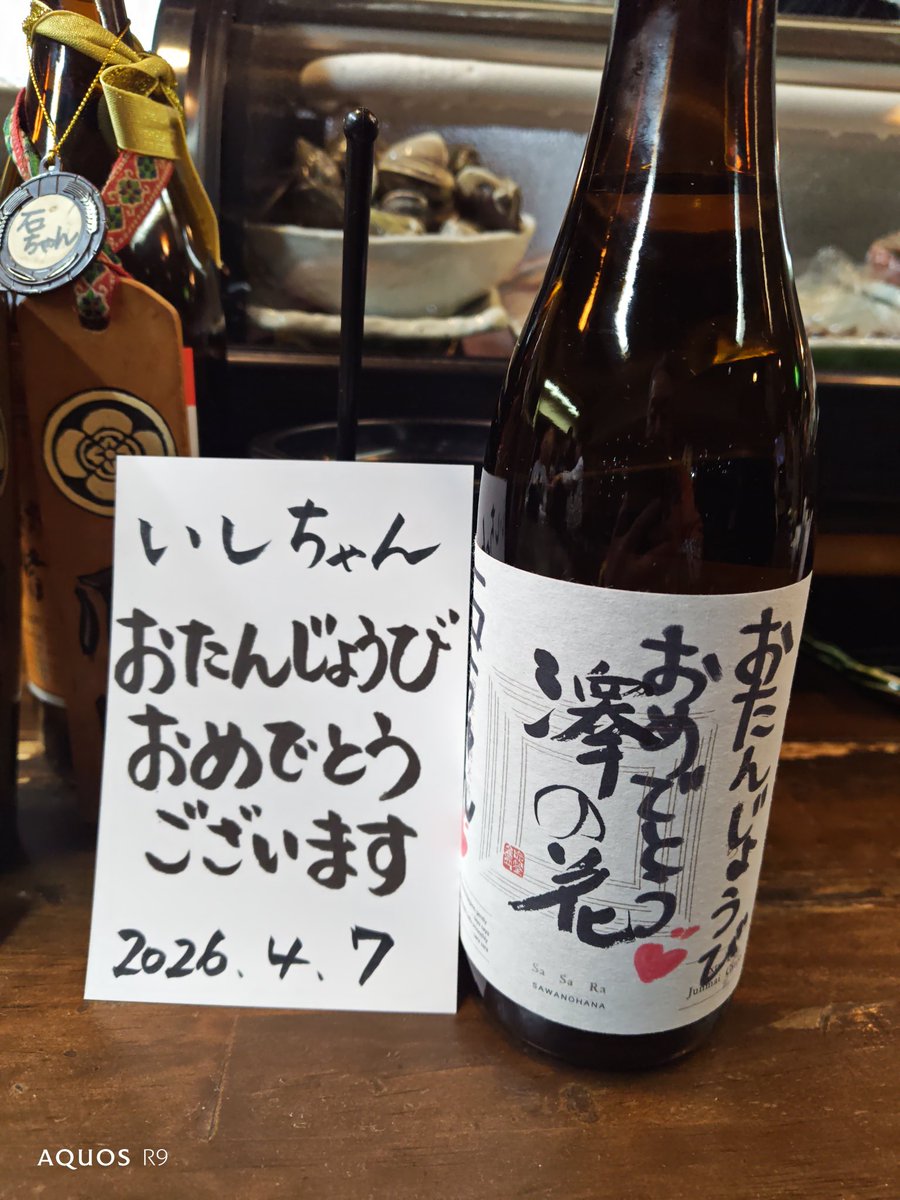 石
ちゃん
いしちゃん
おたんじょうび
おめでとう
ございます
2026.4.7
おたんじょうび
おめでとう
澤の花
Sa Sa Ra
SAWANOHANA
AQUOS R9